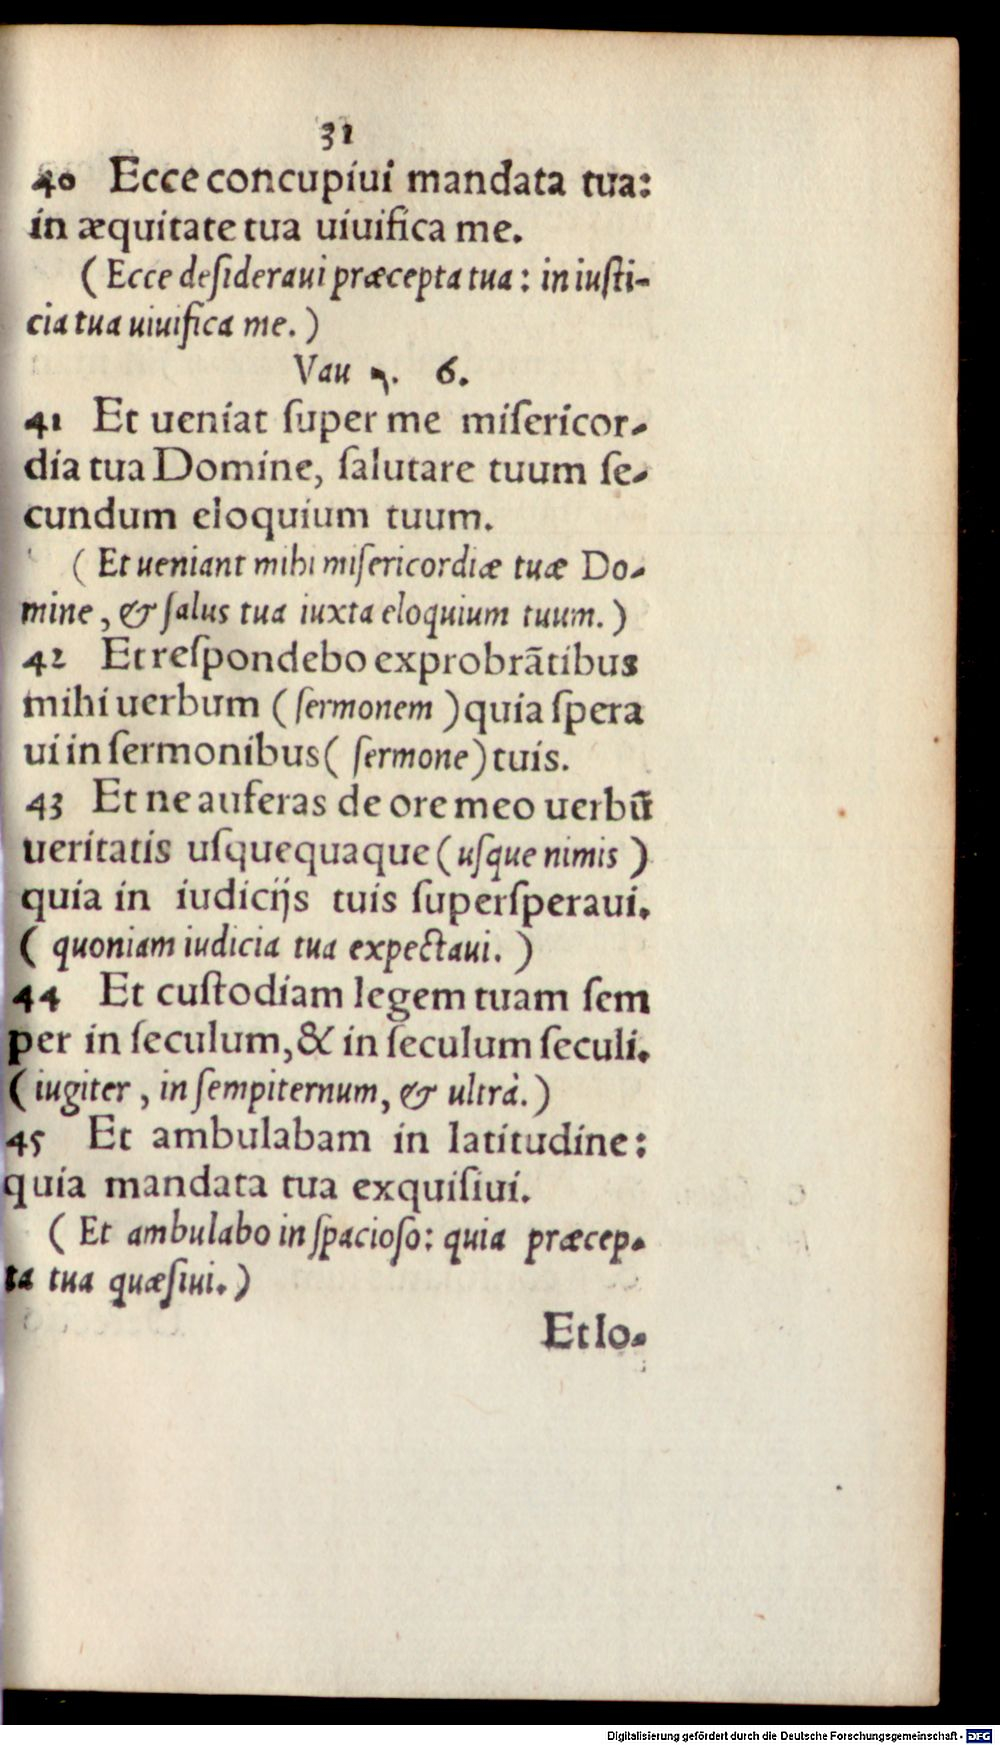 31
40 Ecce concupiui mandata tua:
in æquitate tua uiuifica me.
(Ecce deſideraui præcepta tua: in iuſti-
cia tua uiuifica me.)
Vau ו. 6.
41 Et ueniat ſuper me miſericor-
dia tua Domine, ſalutare tuum ſe-
cundum eloquium tuum.
(Et ueniant mihi miſericordiæ tuæ Do-
mine, & ſalus tua iuxta eloquium tuum.)
42 Et reſpondebo exprobrãtibus
mihi uerbum (ſermonem) quia ſpera
ui in ſermonibus (ſermone) tuis.
43 Et ne auferas de ore meo uerbũ
ueritatis uſquequaque (uſque nimis)
quia in iudicijs tuis ſuperſperaui.
(quoniam iudicia tua expectaui.)
44 Et cuſtodiam legem tuam ſem
per in ſeculum, & in ſeculum ſeculi.
(iugiter, in ſempiternum, & ultrà.)
45 Et ambulabam in latitudine:
quia mandata tua exquiſiui.
(Et ambulabo in ſpacioſo: quia præcep-
ta tua quæſiui.)
Et lo-
Digitalisierung gefördert durch die Deutsche Forschungsgemeinschaft - DFG